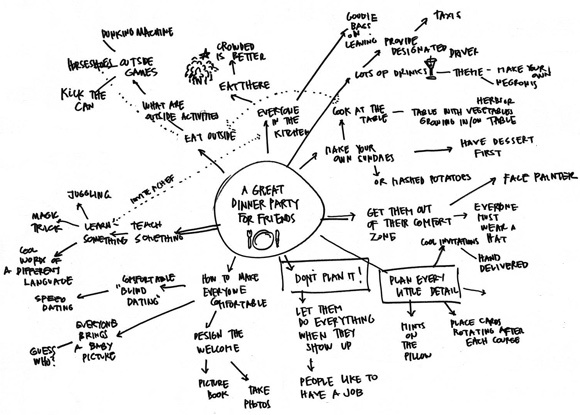 DUNKING MACHINE
HORSESHOES
OUTSIDE
GAMES
KICK THE
CAN
WHAT ARE
OUTSIDE ACTIVITIES
EAT OUTSIDE
CROWDED
IS BETTER
EAT THERE
EVERYONE
IN THE
KITCHEN
GOODIE
BAGS
ON
LEAVING
TAXIS
PROVIDE
DESIGNATED DRIVER
LOTS OF DRINKS
THEME - MAKE YOUR
OWN
NEGRONIS
LOOK AT THE
TABLE
TABLE WITH VEGETABLES
GROWING IN/ON TABLE
MAKE YOUR
OWN SUNDAES
HAVE DESSERT
FIRST
OR MASHED POTATOES
INVITE A CHEF
A GREAT
DINNER PARTY
FOR FRIENDS
JUGGLING
MAGIC
TRICK
LEARN
SOMETHING
TEACH
SOMETHING
COOL
WORK OF
A DIFFERENT
LANGUAGE
GET THEM OUT
OF THEIR COMFORT
ZONE
FACE PAINTER
EVERYONE
MUST
WEAR A
HAT
COOL INVITATIONS
HAND
DELIVERED
HOW TO MAKE
EVERYONE
COMFORTABLE
COMFORTABLE
"BLIND
DATING"
SPEED
DATING
EVERYONE
BRINGS
A BABY
PICTURE
GUESS
WHO?
DESIGN THE
WELCOME
PICTURE
BOOK
TAKE
PHOTOS
DON'T PLAN IT!
LET THEM
DO EVERYTHING
WHEN THEY
SHOW UP
PEOPLE LIKE TO
HAVE A JOB
PLAN EVERY
LITTLE DETAIL
MINTS
ON
THE
PILLOW
PLACE CARDS
ROTATING AFTER
EACH COURSE